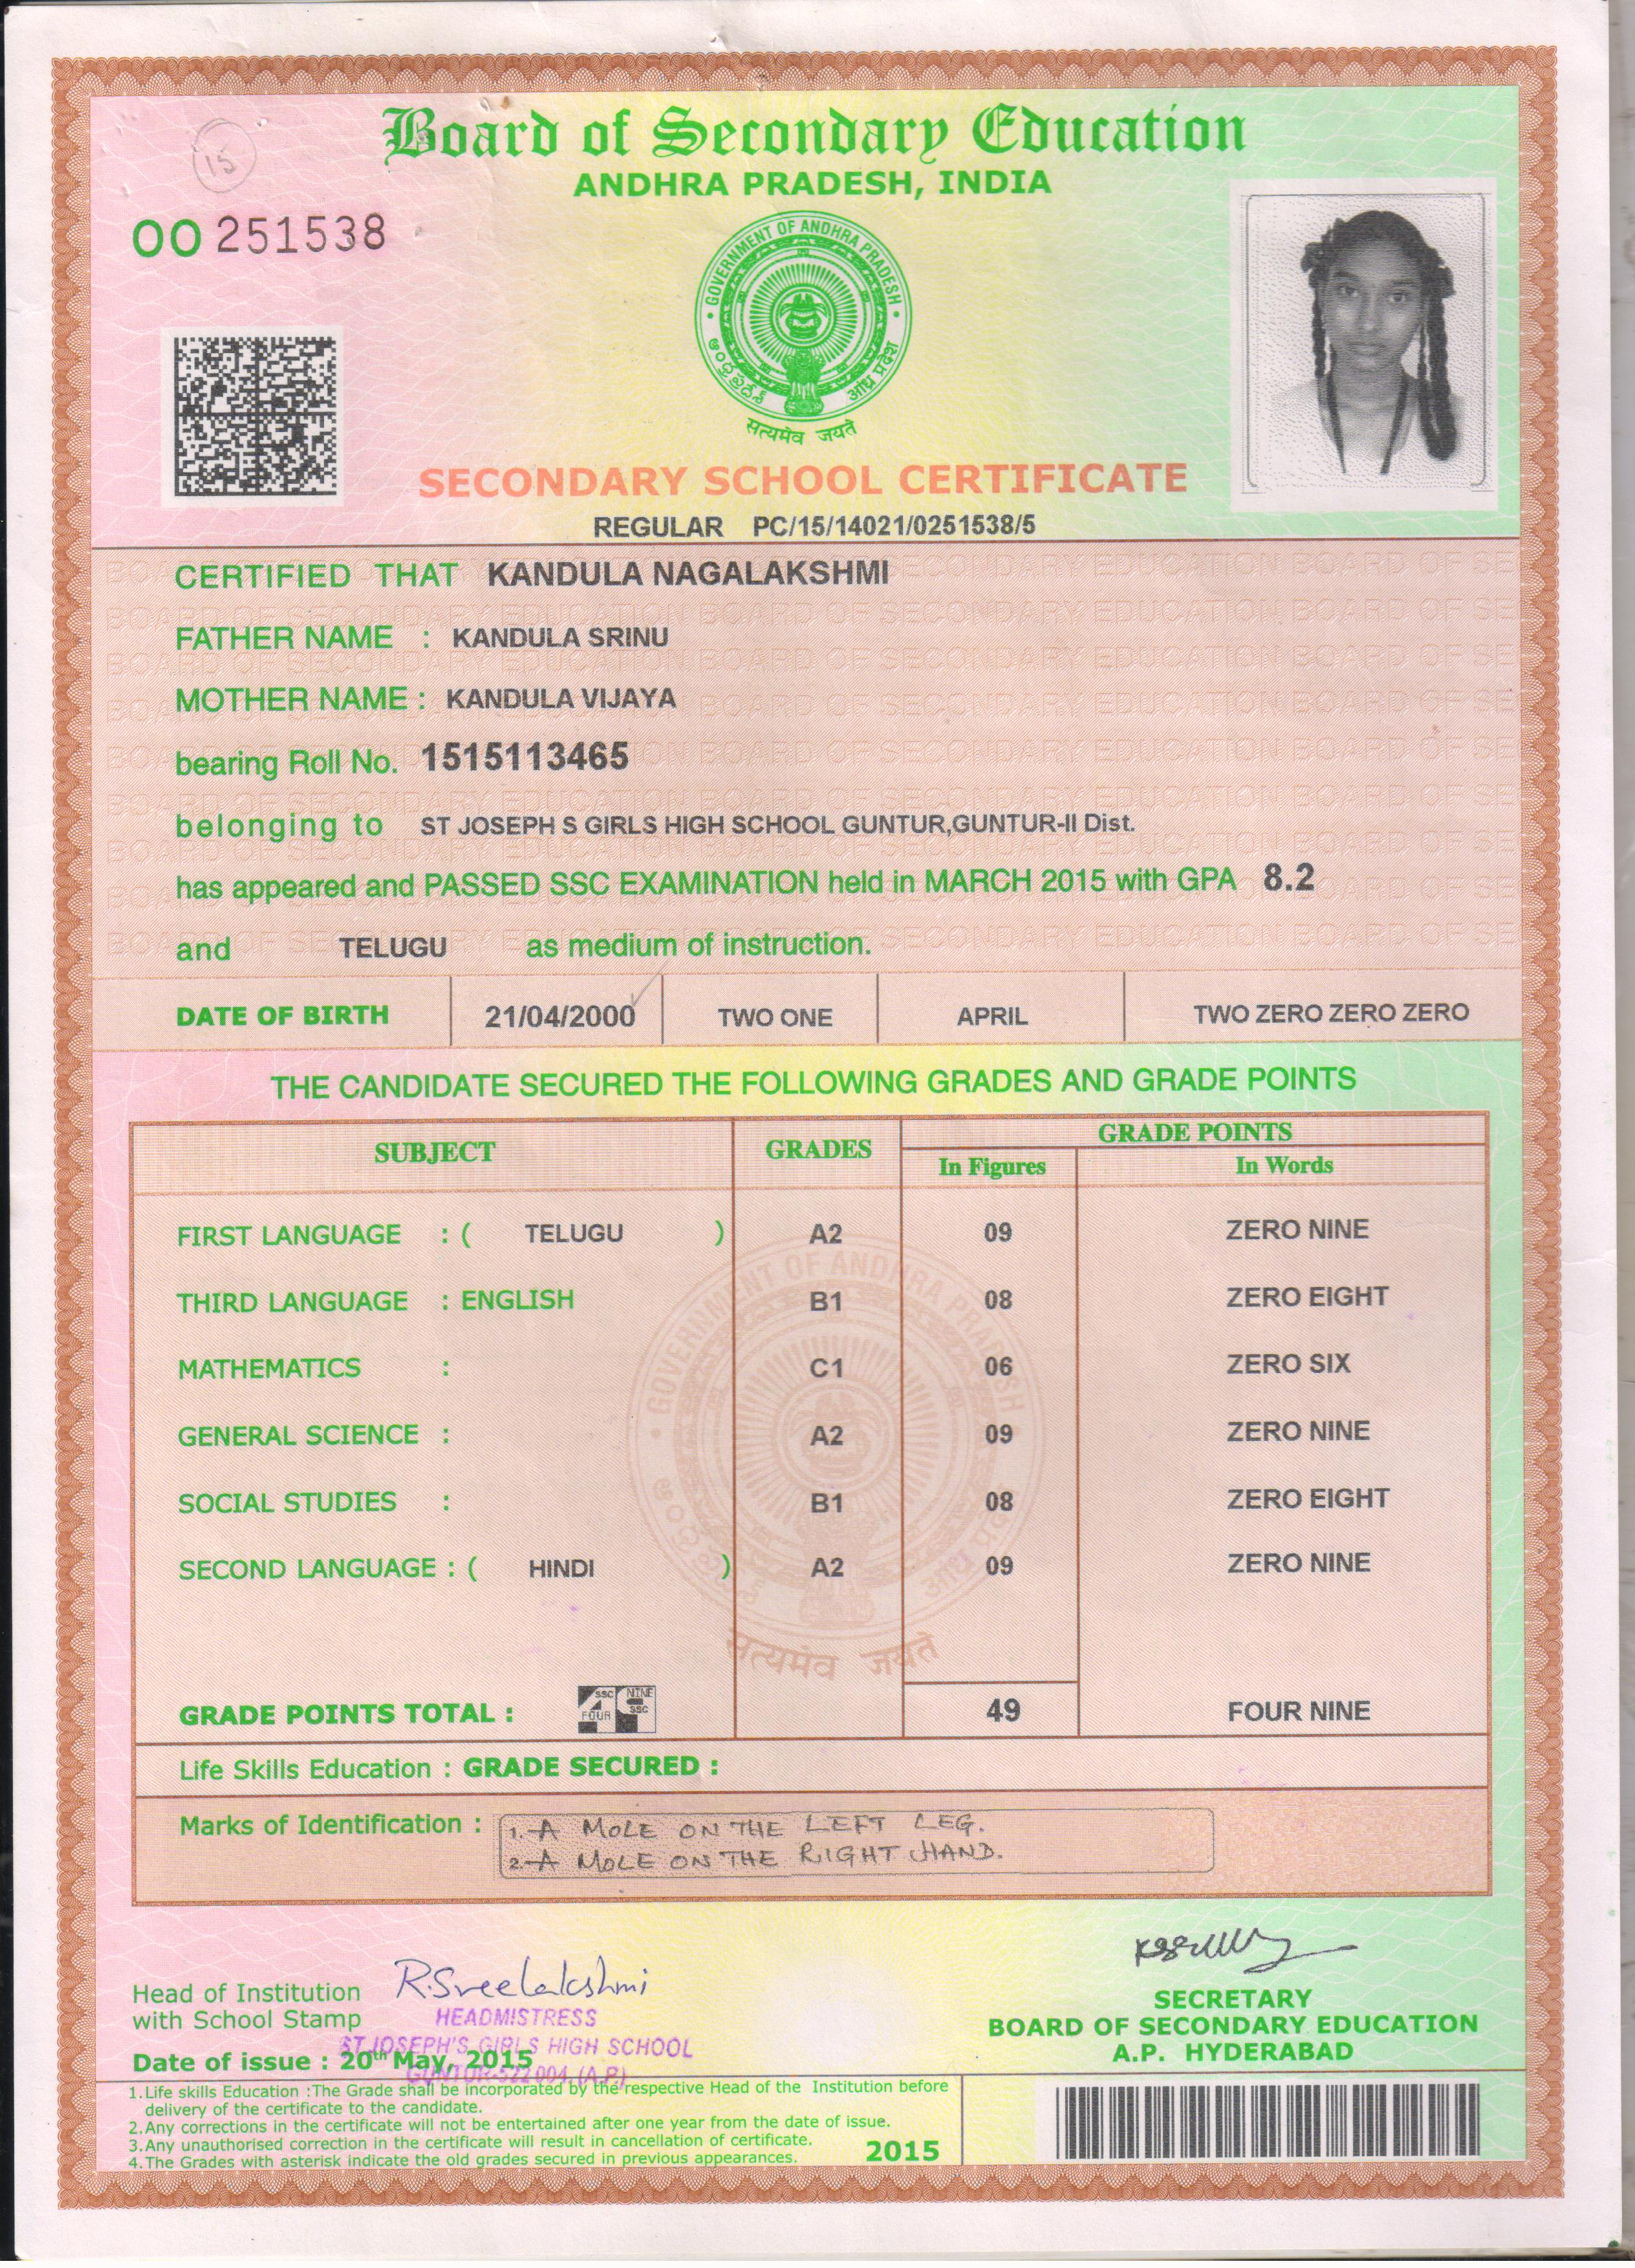 15
Board of Secondary Education
ANDHRA PRADESH, INDIA
OO 251538
GOVERNMENT OF ANDHRA PRADESH
ఆంధ్రప్రదేశ్
आंध्र प्रदेश
सत्यमेव जयते
SECONDARY SCHOOL CERTIFICATE
REGULAR PC/15/14021/0251538/5
CERTIFIED THAT KANDULA NAGALAKSHMI
FATHER NAME : KANDULA SRINU
MOTHER NAME : KANDULA VIJAYA
bearing Roll No. 1515113465
belonging to ST JOSEPH S GIRLS HIGH SCHOOL GUNTUR,GUNTUR-II Dist.
has appeared and PASSED SSC EXAMINATION held in MARCH 2015 with GPA 8.2
and TELUGU as medium of instruction.
DATE OF BIRTH 21/04/2000 TWO ONE APRIL TWO ZERO ZERO ZERO
THE CANDIDATE SECURED THE FOLLOWING GRADES AND GRADE POINTS
SUBJECT GRADES GRADE POINTS
In Figures In Words
FIRST LANGUAGE : ( TELUGU ) A2 09 ZERO NINE
THIRD LANGUAGE : ENGLISH B1 08 ZERO EIGHT
MATHEMATICS : C1 06 ZERO SIX
GENERAL SCIENCE : A2 09 ZERO NINE
SOCIAL STUDIES : B1 08 ZERO EIGHT
SECOND LANGUAGE : ( HINDI ) A2 09 ZERO NINE
सत्यमेव जयते
GRADE POINTS TOTAL : SSC FOUR NINE SSC 49 FOUR NINE
Life Skills Education : GRADE SECURED :
Marks of Identification : 1.-A MOLE ON THE LEFT LEG.
2-A MOLE ON THE RIGHT HAND.
Head of Institution R.Sreelakshmi
with School Stamp HEADMISTRESS
ST.JOSEPH'S GIRLS HIGH SCHOOL
GUNTUR-522 004. (A.P.)
Date of issue : 20th May, 2015
SECRETARY
BOARD OF SECONDARY EDUCATION
A.P. HYDERABAD
1.Life skills Education :The Grade shall be incorporated by the respective Head of the Institution before
delivery of the certificate to the candidate.
2.Any corrections in the certificate will not be entertained after one year from the date of issue.
3.Any unauthorised correction in the certificate will result in cancellation of certificate.
4.The Grades with asterisk indicate the old grades secured in previous appearances.
2015